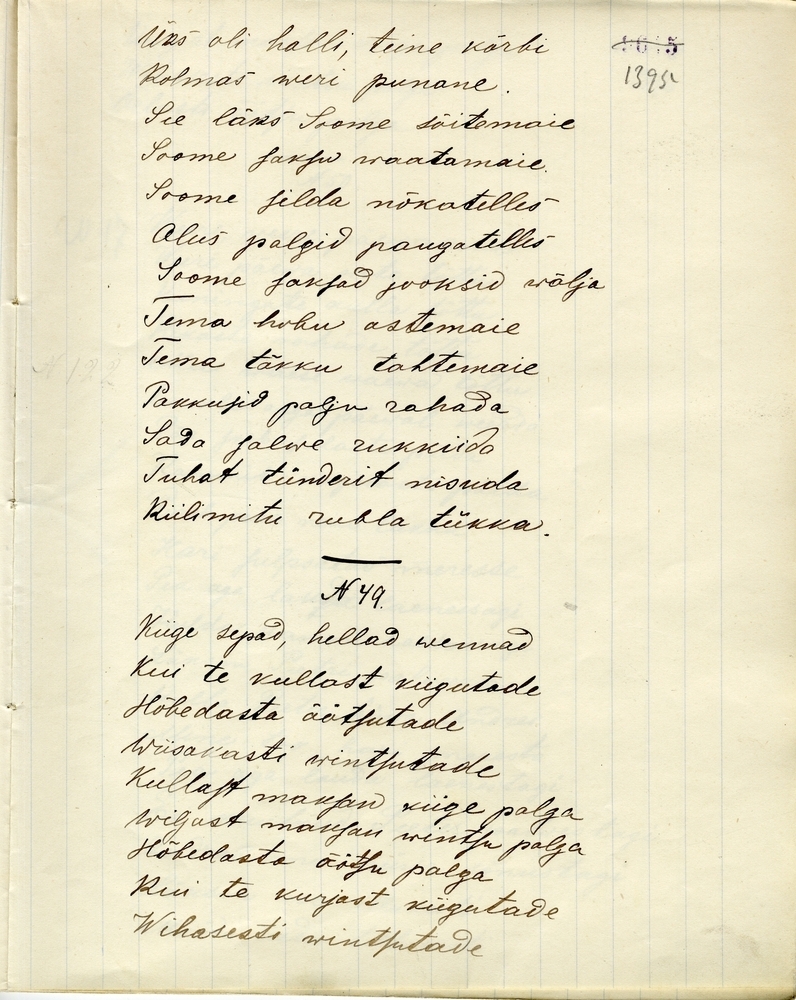 Üks oli halli, teine kõrbi
1395
Kolmas weri punane.
See läks Soome sõitemaie
Soome saksu waatamaie.
Soome silda nõkutelles
Alus palgid paugatelles
Soome saksad jooksid wälja
Tema hobu ostemaie
Tema täkku tahtemaie
Pakkusid palju rahada
Sada salwe rukkiida
Tuhat tünderit nisuda
Külimitu rubla tükka.
N 49.
Kiige sepad, hellad wennad
Kui te kullast kiigutade
Hõbedasta äötsutade
Wiisakasti wintsutade
Kullast maksan kiige palga
Wiljast maksan wintsu palga
Hõbedasta äötsu palga
Kui te kurjast kiigutade
Wihasesti wintsutade